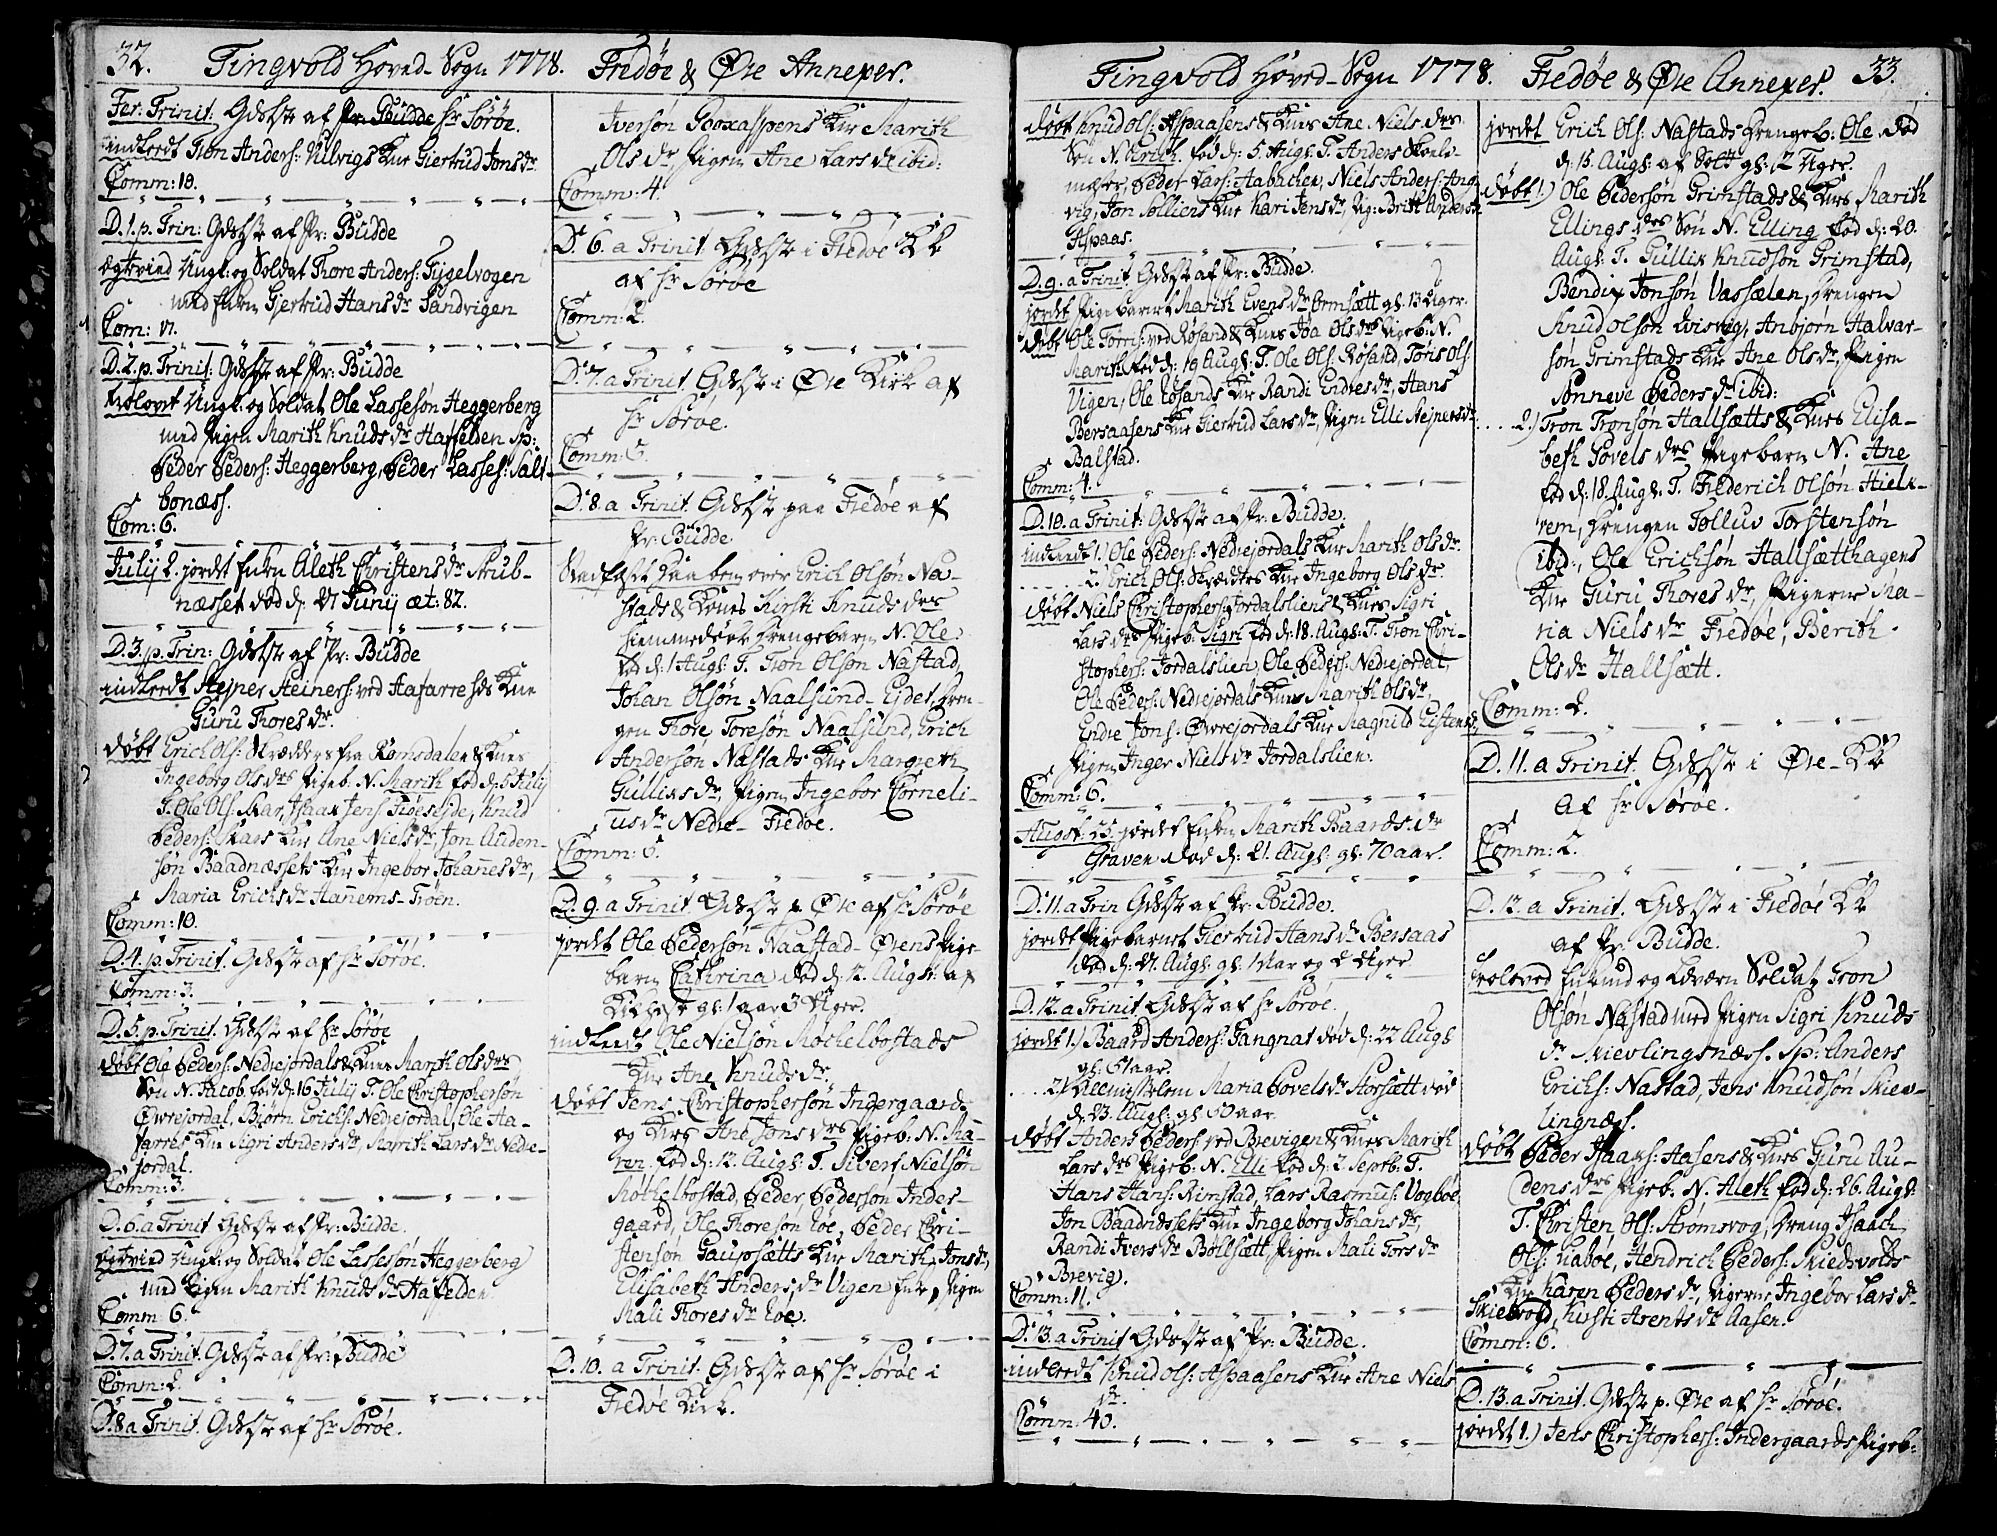 32. Tingvold Hoved-Sogn 1778. Fredøe & Øre Annexer.
Fer: Trinit: Gdstste af Hr. Sørøe.
indleedt Tron Anders: Ulvigs Kne Giertrud Jons dr.
Comm: 18.
D. 1. p. Trin: Gdstste af Pr: Budde
Ægtevied Ungk: og Soldat Thore Anders: Gygelvogen
med Enken Gjertrud Hans dr Sandvigen
Com: 17.
D. 2. p. Trinit. Gdstste af Pr: Budde
trolovet Ungk: og Soldat Ole Lassesøn Heggerberg
med Pigen Marith Knuds dr Hafelden Sp:
Peder Peders: Heggerberg, Peder Lasses: Salt-
bonæss.
Com: 6.
Julij 2. jordet Enken Aleth Christens dr Strub-
næsset død d: 27 Junij æt: 82.
D. 3. p. Trin: Gdstste af Pr: Budde
indleedt Stejner Steiners: ved Hafarrestds Kne
Guru Thores dr.
døbt Erich Ols: Skrædders fra Romsdalen & Knes
Ingeborg Ols drs Pigeb. N. Marith fød d: 5 Julij
T. Ole Ols: Skar, Isaak Jens: Knud
Peders: Skars Kne Ane Niels dr, Jon Auden-
søn Baadnæssets Kne Ingebor Johanes dr,
Maria Erichs dr Hanems-Trøen.
Comm: 10.
D. 4. p. Trinit. Gdstste af Hr Sørøe.
Comm: 3.
D. 5. p. Trinit. Gdstste af Hr Sørøe
døbt Ole Peders: Nedrejordals & Knes Marith Ols drs
Søn N. Jacob. fødd: 16 Julij T. Ole Christophersøn
Øvrejordal, Biørn Erichs: Nedrejordal, Ole Ha-
farres Kne Sigri Anders dr, Marith Lars dr Nedre-
jordal.
Comm: 3.
D. 6. a Trinit Gdstste af Pr: Budde.
Ægteviied Ungk: og Soldat Ole Lassesøn Heggerberg
med Pigen Marith Knuds dr Hafelden
Comm 6.
D. 7. a Trinit. Gdstste af Pr: Budde
Comm: 2.
D. 8 a Trinit. Gdstste af Hr Sørøe.
Iversøn Kne Marith
Ols dr Pigen Ane Lars dr ibid:
Comm: 4.
D. 6. a Trinit Gdstste i Fredøe Kk
af Hr Sørøe
Comm: 2.
D. 7. a Trinit. Gdstste i Øre Kirke af
Hr Sørøe.
Comm: 5.
D. 8. a Trinit. Gdstste paa Fredøe af
Pr: Budde
Stadfæst Daaben over Erich Olsøn Na-
stads & Kones Kirsti Knuds drs
hiemmedøbt Drengebarn N. Ole
fød d: 1 Augs: T. Tron Olsøn Nastad,
Johan Olsøn Naalsund-Eidet, Dren-
gen Thore Toresøn Naalsund, Erich
Andersøn Nastads Kne Margreth
Gulliks dr, Pigen Ingebor Corneli-
us dr Nedre-Fredøe.
Comm: 5.
D. 9. a Trinit. Gdstste p. Øre af Hr Sørøe
jordet Ole Pedersøn Naastad-Ørens Pige-
barn Catherina død d: 12. Augs: af
Kikhoste gl: 1 aar 3 Uger.
indleedt Ole Nielsøn Møchelbostads
Kne Ane Knuds dr
døbt Jens Christophersøn Indergaards
og Knes Ane Jons drs Pigeb. N. Ma-
ren. fød d: 12. Augs: T. Sivert Nielsøn
Møchelbostad, Peder Pedersøn Inder-
gaard, Ole Thoresøn Hoe, Peder Chri-
stensøn Gaupsætts Kne Marith Jons dr,
Elisabeth Anders dr Vigen Enke, Pigen
Mali Thores dr Hoe.
D. 10. a Trinit. Gdstste af Hr Sørøe i
Fredøe Kirk.
Tingvold Hoved-Sogn 1778. Fredøe & Øre Annexer. 33.
døbt Knud Ols: Aspaasens & Knes Ane Niels drs
Søn N. Erich. fød d: 5. Augs: T. Anders Skole-
mæster, Peder Lars: Aabachen, Niels Anders: Ang-
vig, Jon Solliens Kne Kari Jens dr, Pig: Britt Anders dr
Aspaas.
D. 9. a Trinit. Gdstste af Pr: Budde.
jordet Pigebarnet Marith Evens dr Ormsætt gl: 13 Uger.
døbt Ole Torris: ved Røsand & Knes Ols drs Pigeb. N.
Marith fød d: 19 Augs: T. Ole Ols: Røsand, Tøris Ols:
Vigen, Ole Røsands Kne Randi Endres dr, Hans
Bersaasens Kne Giertrud Lars dr, Pigen Elli Stejners dr
Balstad.
Comm: 4.
D. 10. a Trinit: Gdstste af Pr: Budde.
indleedt 1.) Ole Peders: Nedrejordals Kne Marith Ols dr.
2. Erich Ols: Skrædders Kne Ingeborg Ols dr.
døbt Niels Christophers: Jordalsliens & Knes Sigri
Lars drs Pigeb: Sigri fød d: 18. Augs: T. Tron Chri-
stophers: Jordalslien, Ole Peders: Nedrejordal,
Ole Peders: Nedrejordals Knes Marith Ols dr,
Endre Jons: Øvrejordals Kne Magnild Eistens dr,
Pigen Inger Niels dr Jordalslien.
Comm: 6.
August. 25. jordet Enken Marith Baards dr
Graven død d: 21. Augs: gl: 70 aar.
D. 11. a Trin Gdstste af Pr: Budde.
jordet Pigebarnet Giertrud Hans dr Bersaas
død d: 27. Augs: gl: 1 Aar og 2 Uger
D. 12. a Trinit. Gdstste af Hr Sørøe.
jordet 1.) Baard Anders: Gangnat død d: 22 Augs
gl: 61 aar.
2.) Almisselem Maria Povels dr Storsætt død
d: 23. Augs: gl: 50 aar.
døbt Anders Peders: ved Brevigen & Knes Marith
Lars drs Pigeb. N. Elli fød d: 2. Septb. T.
Hans Hans: Rimstad, Lars Rasmus: Vogbøe
Jon Baadnssets Kne Ingeborg Johans dr,
Randi Ivers dr Bøllsætt, Pigen Mali Tors dr
Brevig.
Comm: 11.
D. 13. a Trinit Gdstste af Pr: Budde.
indleedt Knud Ols: Aspaasens Kne Ane Niels
dr.
Comm: 40.
jordet Erich Ols: Nastads Drengeb: Ole. død
d: 15. Augs: af Sott gl: 2 Uger.
døbt 1.) Ole Pedersøn Grimstads & Knes Marith
Ellings drs Søn N. Elling fød d: 20.
Augs: T. Gullik Knudsøn Grimstad,
Bendix Jonsøn Vassælen, Drengen
Knud Olsøn Kvisvig, Anbjørn Halvar-
søn Grimstads Kne Ane Ols dr, Pigen
Sønneve Peders dr ibid:
2.) Tron Tronsøn Hallsætts & Knes Elisa-
beth Povels drs Pigebarn N. Ane
fød d: 18. Augs: T. Frederich Olsøn Hielk-
rem, Drengen Tolluv Torstensøn
ibid., Ole Erichsøn Hallsætthagens
Kne Guru Thores dr, Pigerne Ma-
ria Niels dr Fredøe, Berith
Ols dr Hallsætt.
Comm: 2.
D. 11. a Trinit. Gdstste i Øre-Kk
af Hr Sørøe.
Comm: 2.
D. 12. a Trinit. Gdstste i Fredøe Kk
af Pr: Budde.
troloved Enkemd og Soldat Tron
Olsøn Nastad med Pigen Sigri Knuds
dr Skievlingsnæss. Sp: Anders
Erichs: Nastad, Jens Knudsøn Skiev-
lingnæs.
døbt Peder Isaaks: Aasens & Knes Guru Au-
dens drs Pigeb. N. Aleth fød d: 26. Augs:
T. Christen Ols: Strømsvog, Dreng Isaach
Ols: Naboe, Hendrich Peders: Skiedsvolds
Kne Karen Peders dr, Pigerne Ingebor Lars dr
Skiedsvold, Kirsti Arents dr Aasen.
Comm: 6.
D. 13. a Trinit. Gdstste p. Øre af Hr Sørøe.
jordet 1.) Jens Christophers: Indergaards Pigeb: